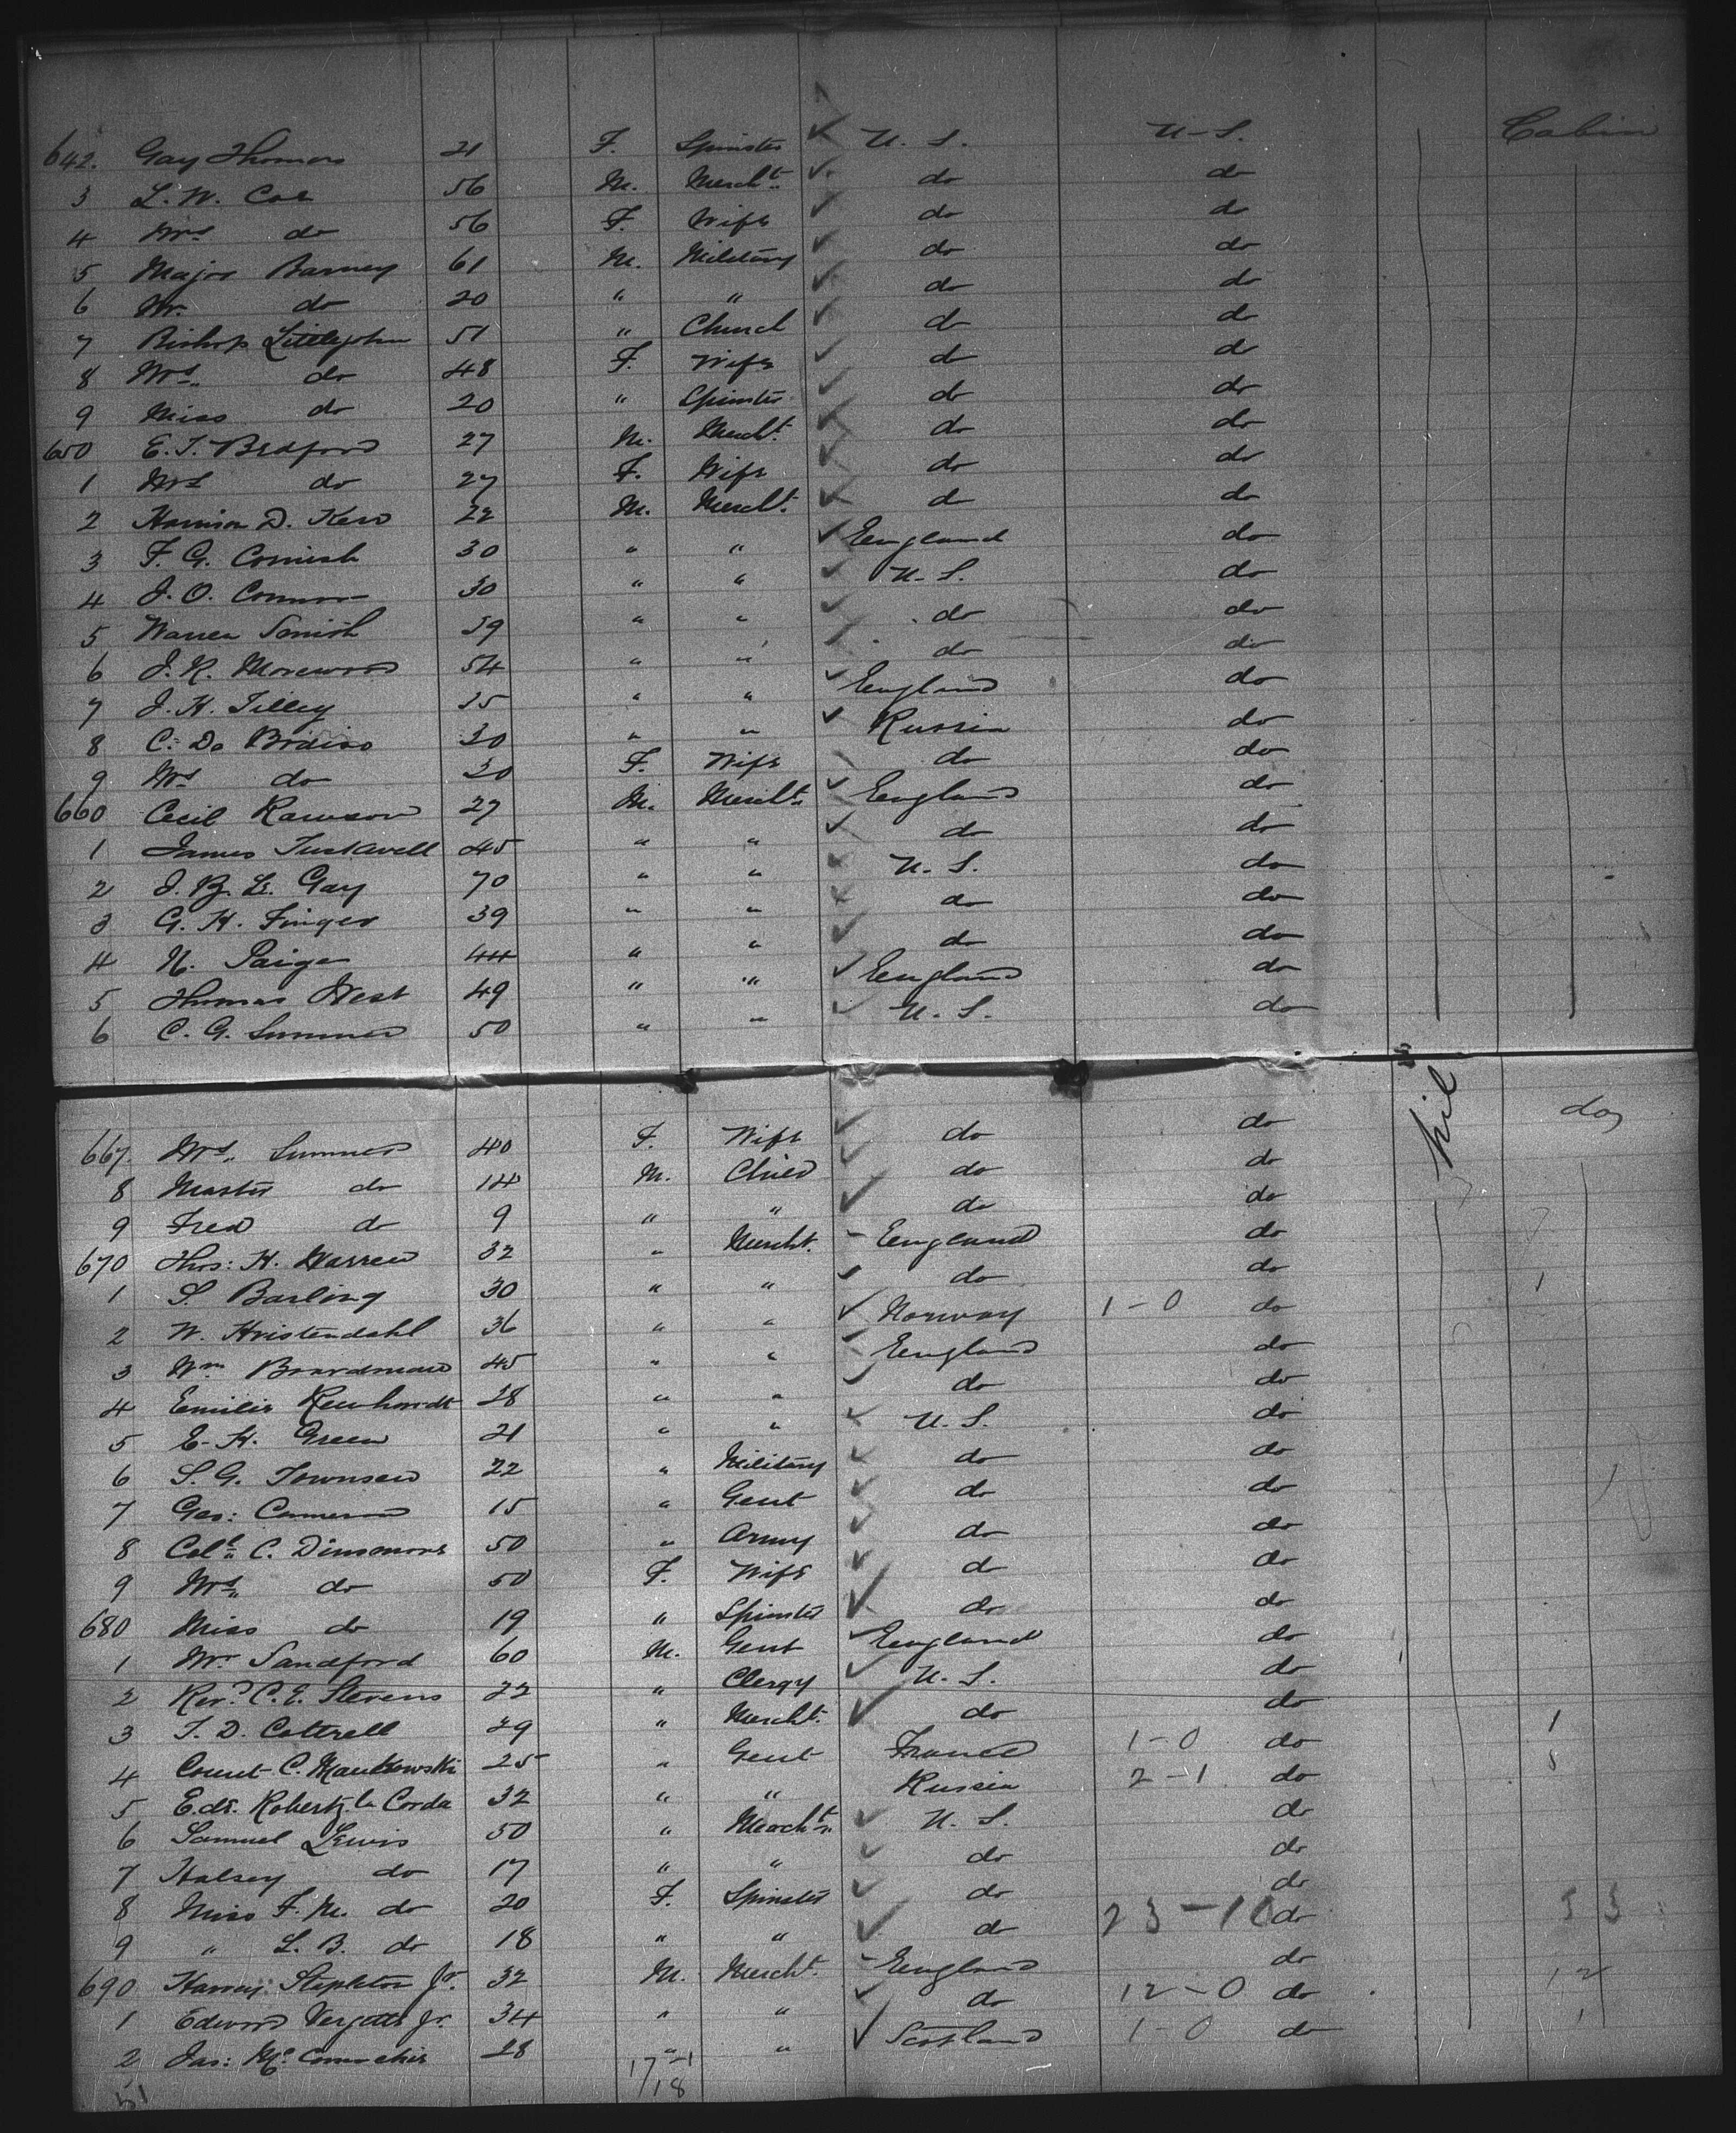 642. Gay Thomas 21 F. Spinster U. S. U-S. Cabin
3 L. W. Coe 56 M. Mercht. do do
4 Mrs do 56 F. Wife do do
5 Major Barney 61 M. Military do do
6 Mr. do 20 " " do do
7 Bishop Littlejohn 51 " Church do do
8 Mrs. do 48 F. Wife do do
9 Miss do 20 " Spinster do do
650 E. T. Bedford 27 M. Mercht. do do
1 Mrs do 27 F. Wife do do
2 Harrison D. Kerr 22 M. Mercht. do do
3 F. G. Cornish 30 " " England do
4 J. O. Connor 30 " " U-S. do
5 Warren 39 " " do do
6 J. R. Morewood 54 " " do do
7 J. H. Tilley 25 " " England do
8 C. De 30 " " Russia do
9 Mrs do 20 F. Wife do do
660 Cecil Rawson 27 M. Mercht. England do
1 James Tuckwell 45 " " do do
2 J. B. Le. Gay 70 " " U-S. do
3 G. H. Finger 39 " " do do
4 N. Paige 44 " " do do
5 Thomas West 49 " " England do
6 C. G. Sumner 50 " " U. S. do
nil
667. Mrs. Sumner 40 F. Wife do do do
8 Master do 14 M. Child do do
9 Fred do 9 " " do do
670 Thos: H. Warren 32 " Mercht. England do
1 S. Barling 30 " " do do 1
2 W. Kristendahl 36 " " Norway 1-0 do
3 Wm Boardman 45 " " England do
4 Emilie 28 " " do do
5 E-H. Green 21 " " U-S. do
6 S. G. Townsend 22 " Military do do
7 Geo: Cameron 15 " Gent do do
8 Coll. C. Dinsmore 50 " Army do do
9 Mrs. do 50 F. Wife do do
680 Miss do 19 " Spinster do do
1 Mr Sandford 60 M. Gent England do
2 Revd. C. E. Stevens 22 " Clergy U-S. do
3 T. D. Cottrell 29 " Mercht. do do
4 Count C. Mankowski 25 " Gent France 1-0 do 1
5 E. de. Robertz la Corda 32 " " Russia 2-1 do
6 Samuel Lewis 50 " Mercht. U. S. do
7 Halsey do 17 " " do do
8 Miss F. M. do 20 F. Spinster do do
9 " L. B. do 18 " " do 23-10 do 33
690 Harvey Stapleton Jr. 32 M. Mercht. England do
1 Edward Vergette Jr. 34 " " do 12-0 do 12
2 Jas: 28 " " Scotland 1-0 do 1
17/18
51